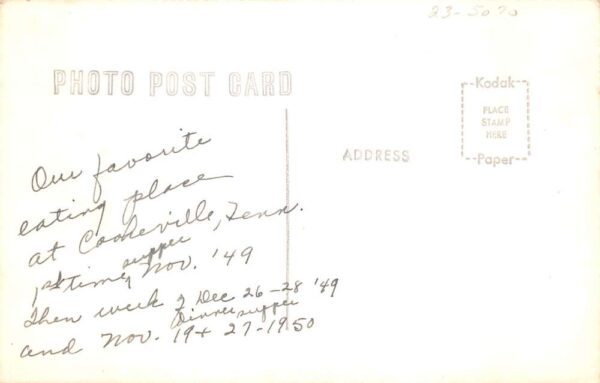 23-5070
PHOTO POST CARD
Kodak
PLACE
STAMP
HERE
Paper
ADDRESS
Our favorite
eating place
at Cookeville, Tenn.
supper
1st time, Nov. '49
Then week of Dec 26-28 '49
Dinner supper
and Nov. 19 + 27-1950